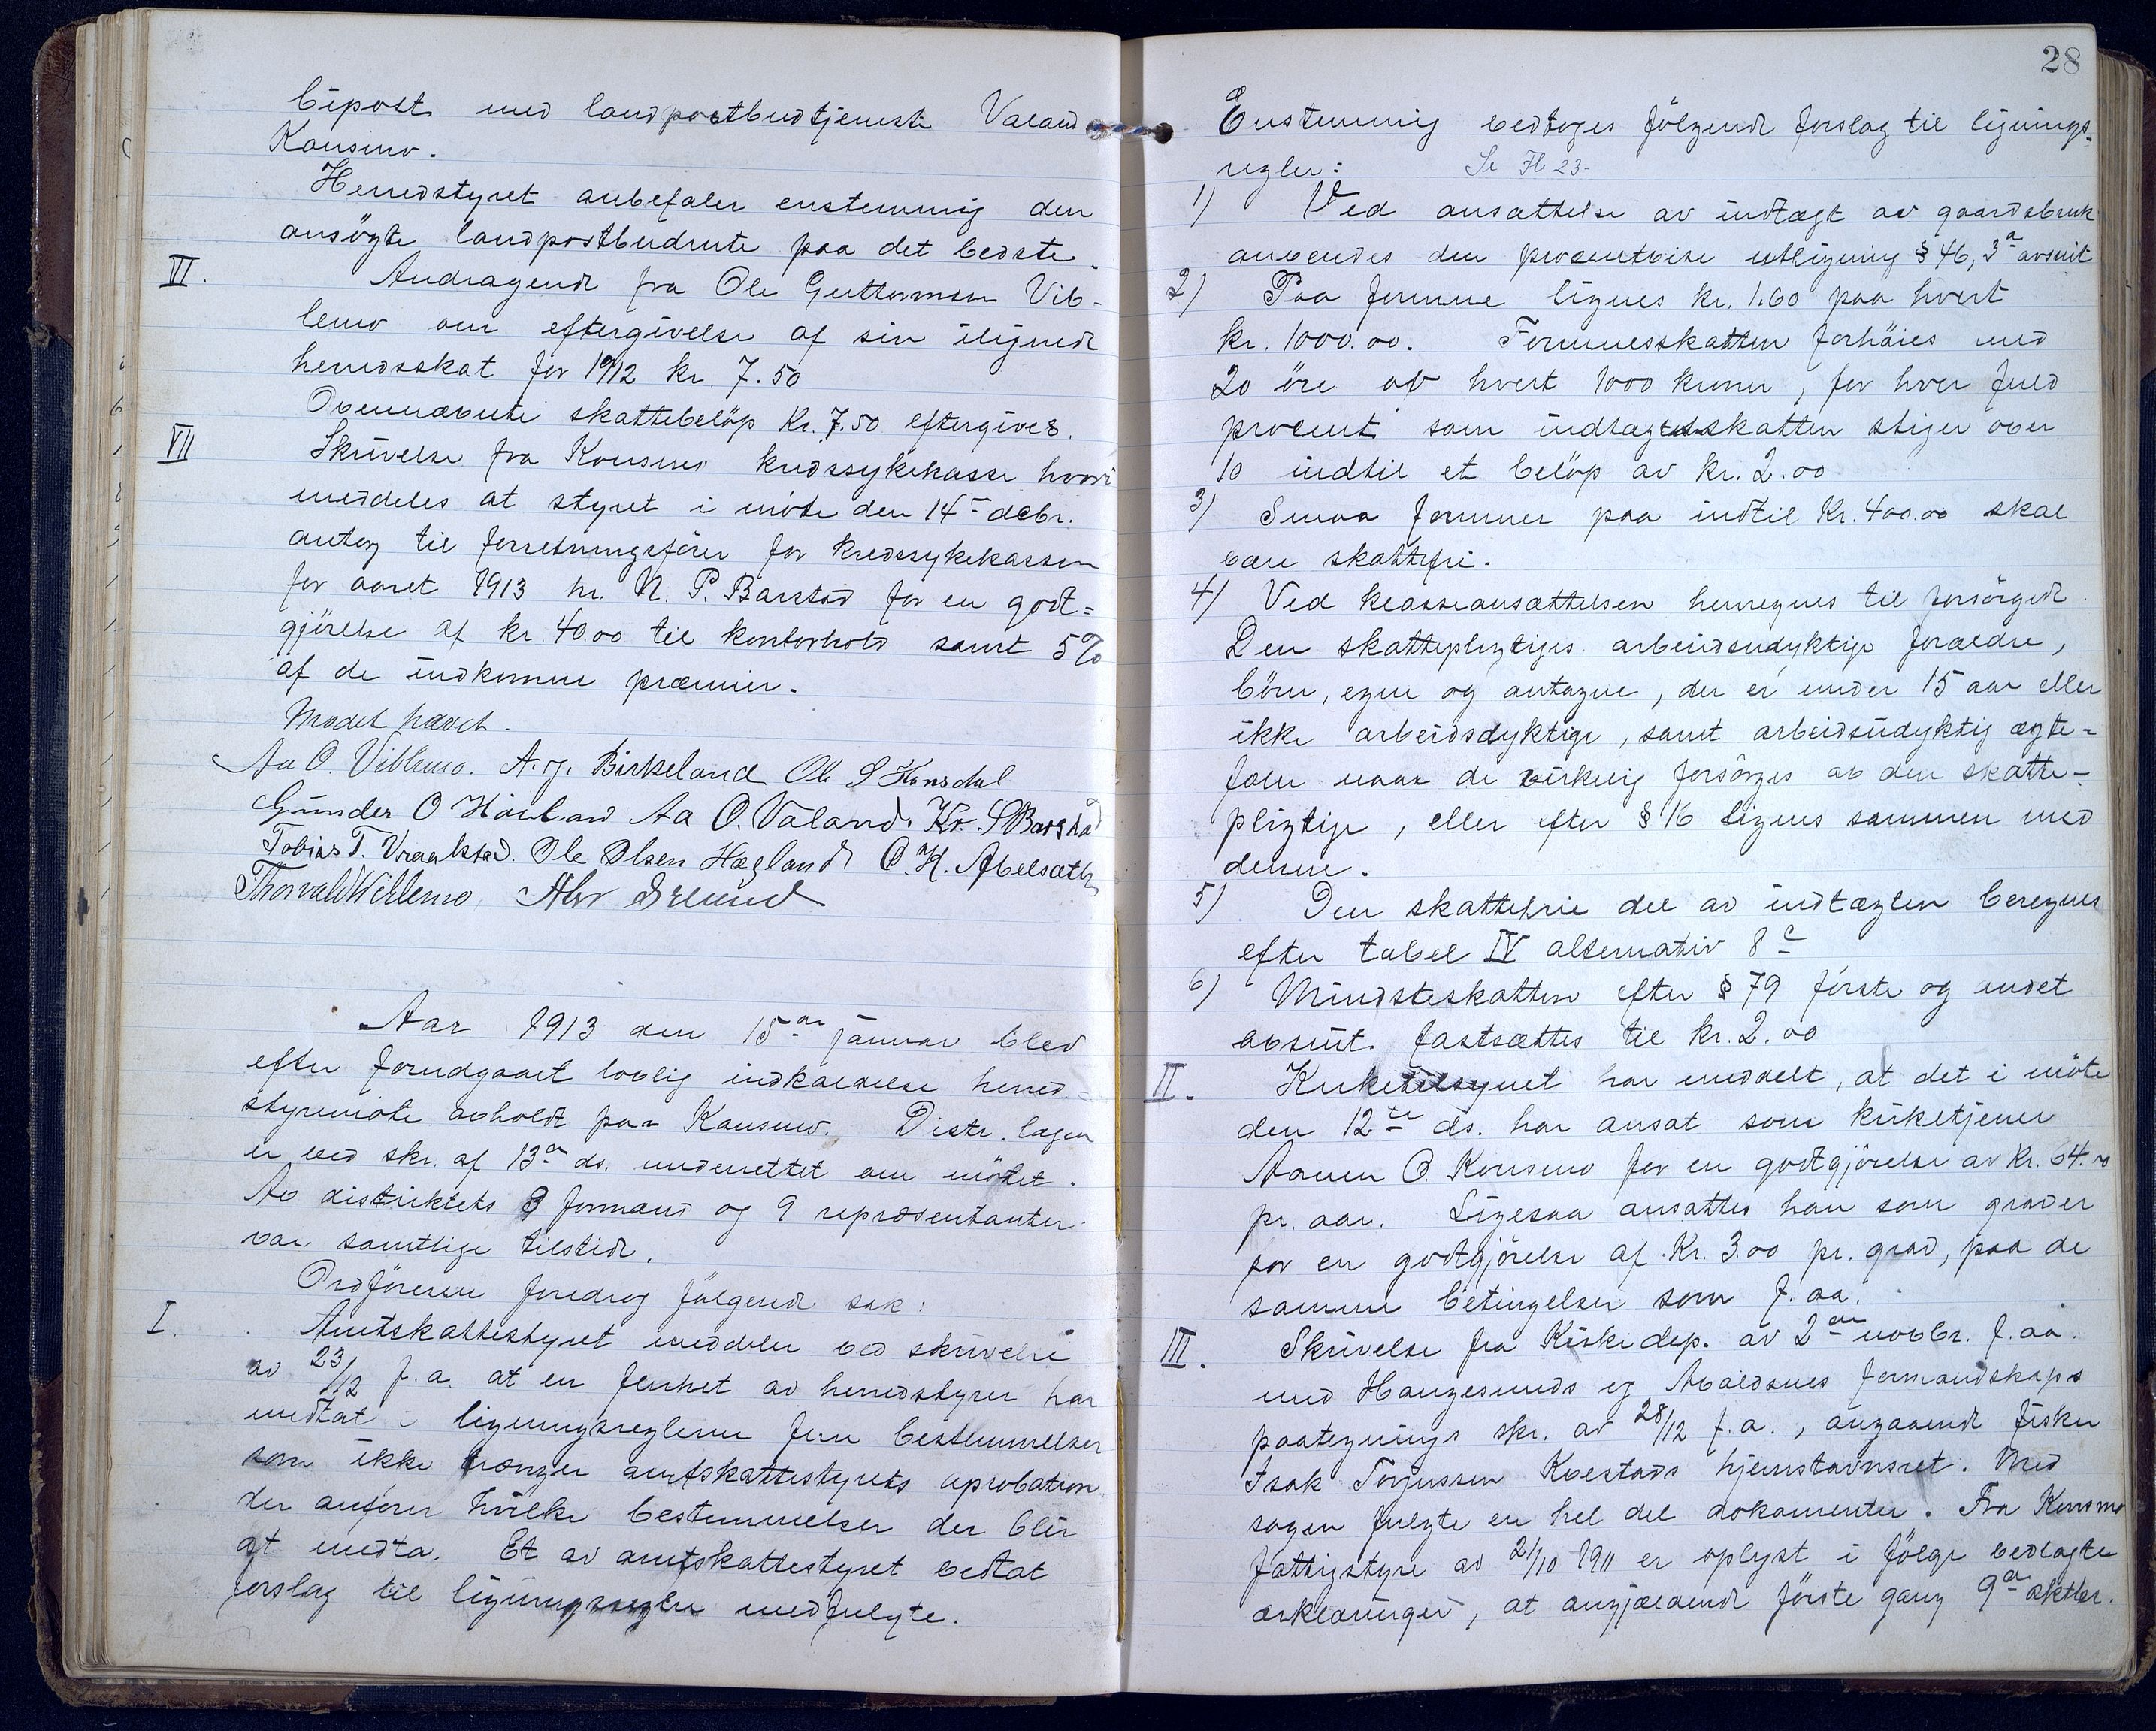 bipost med landpostbudtjeneste Valand
Konsmo.
Herredstyret anbefaler enstemmig den
ansögte landpostbudrute paa det bedste.
VI. Andragende fra Ole Guttormsen Vib-
lemo om eftergivelse af sin ilignede
herredsskat for 1912 kr. 7.50
Ovennævnte skattebelöp Kr. 7.50 eftergives.
VII Skrivelse fra Konsmo kredssykekasse hvori
meddeles at styret i möte den 14- decbr.
antog til forretningsförer for kredssykekassen
for aaret 1913 hr. N. P. Barstad for en godt=
gjörelse af kr. 40.00 til kontorhold samt 5%
af de indkomne præmier.
Mødet hævet.
Aa O. Viblemo. A. J. Birkeland Ole S Konsdal
Gunder O Haaland Aa O. Valand. Kr. S Barstad
Tobias T. Vraalstad. Ole Olsen Hægland O. K. Abelsæth
Thorvald Viblemo
Aar 1913 den 15de januar blev
efter forudgaaet lovlig indkaldelse herred=
styremöte avholdt paa Konsmo. Distr. lægen
er ved skr. af 13de ds. underrettet om mötet.
Av distriktets 3 formænd og 9 repræsentanter
var samtlige tilstede.
Ordföreren foredrog fölgende sak:
I. Amtskattestyret meddeler ved skrivelse
av 23/12 f. a. at en flerhet av herredstyrer har
medtat i ligningsreglerne flere bestemmelser
som ikke trænger amtskattestyrets aprobation
der anförer hvilke bestemmelser der blir
at medta. Et av amtskattestyret vedtat
forslag til ligningsregler medfulgte.
28
Enstemmig vedtoges fölgende forslag til lignings-
regler: Se Fb 23-
1) Ved ansættelse av indtægt av gaardsbruk
anvendes den procentvise utligning § 46, 3de avsnit
2) Paa formue lignes kr. 1.60 paa hvert
kr. 1000.00. Formuesskatten forhöies med
20 öre av hvert 1000 kroner, for hver fuld
procent som indtægtsskatten stiger over
10 indtil et belöp av kr. 2.00
3) Smaa formuer paa indtil Kr. 400.00 skal
være skattefri.
4) Ved klasseansættelsen henregnes til forsörgede
Den skattepligtiges arbeidsudyktige forældre,
börn, egne og antagne, der er under 15 aar eller
ikke arbeidsdyktige, samt arbeidsudyktig ægte-
fælle naar de virkelig forsörges av den skatte-
pligtige, eller efter § 16 lignes sammen med
denne.
5) Den skattefrie del av indtægten beregnes
efter tabel IV alternativ 8 c
6) Mindsteskatten efter § 79 förste og andet
avsnit. fastsættes til kr. 2.00
II. Kirketilsynet har meddelt, at det i möte
den 12te ds. har ansat som kirketjener
Aanen O. Konsmo for en godtgjörelse av Kr. 64.00
pr. aar. Ligesaa ansattes han som graver
for en godtgjörelse af Kr. 3.00 pr. grav, paa de
samme betingelser som f. aa.
III. Skrivelse fra Kirkedep. av 2den novbr. f. aa.
med Haugesunds og Avaldsnes formandskaps
paategnings skr. av 28/12 f. a., angaaende fisker
Isak Torjussen Kvestads hjemstavnsret. Med
sagen fulgte en hel del dokumenter. Fra Konsmo
fattigstyre av 21/10 1911 er oplyst i fölge vedlagte
erklæringer, at angjældende förste gang 9de oktbr.